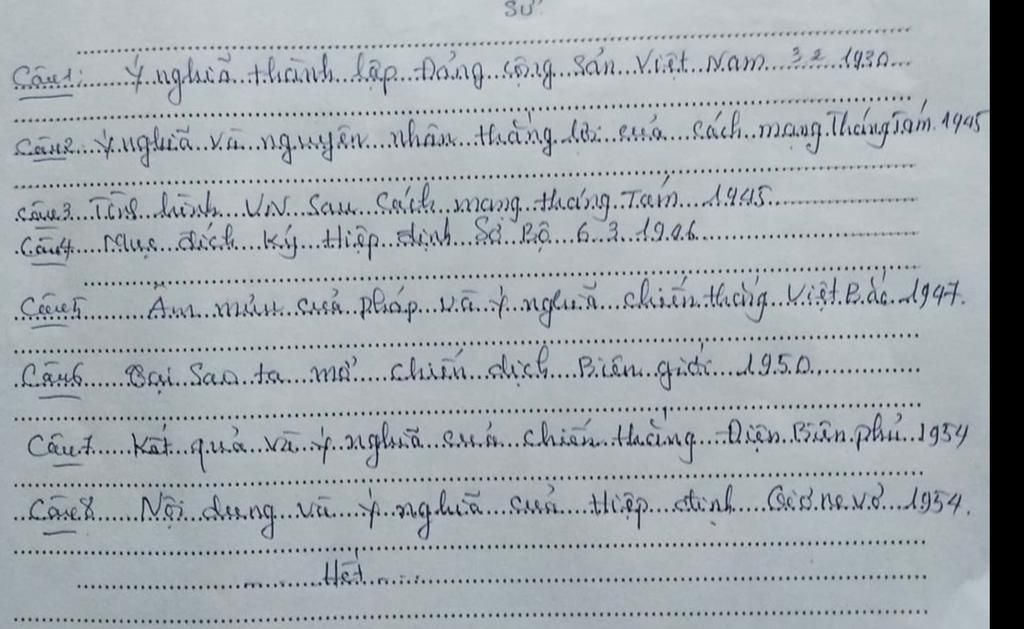 SỬ
Câu1: Ý nghĩa thành lập Đảng cộng sản Việt Nam 3.2.1930
Câu2 Ý nghĩa và nguyên nhân thắng lợi của cách mạng Tháng Tám 1945
Câu3 Tình hình VN sau cách mạng tháng Tám 1945
Câu4 Mục đích ký Hiệp định Sơ Bộ 6.3.1946
Câu5 Âm mưu của pháp và ý nghĩa chiến thắng Việt Bắc 1947.
Câu6 Tại sao ta mở chiến dịch Biên giới 1950
Câu7 Kết quả và ý nghĩa của chiến thắng Điện Biên phủ 1954
Câu8 Nội dung và ý nghĩa của Hiệp định Giơ.ne.vơ 1954.
Hết